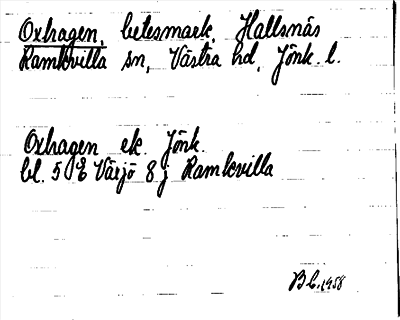 Oxhagen, betesmark, Hallsnäs
Ramkvilla sn, Västra hd, Jönk. l.
Oxhagen ek. Jönk.
bl. 5 E Växjö 8 j Ramkvilla
B L. 1958